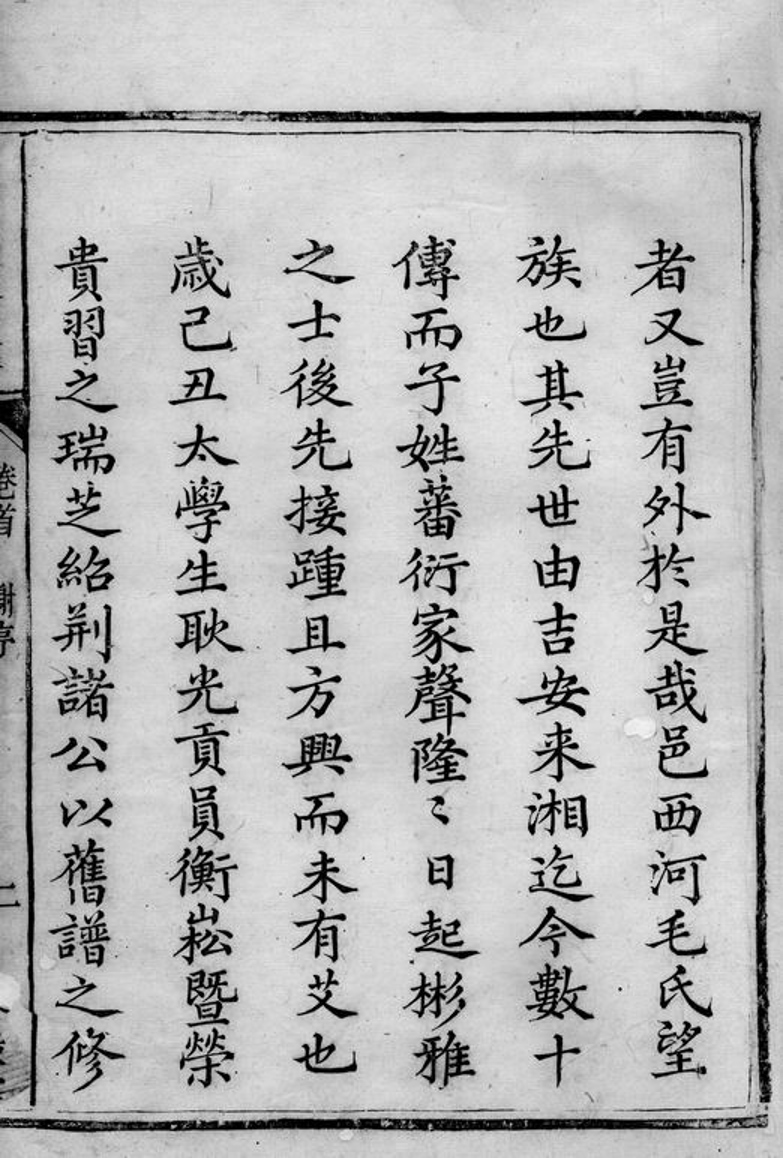 者又豈有外於是哉邑西河毛氏望
族也其先世由吉安来湘迄今數十
傳而子姓蕃衍家聲隆〻日起彬雅
之士後先接踵且方興而未有艾也
歳己丑太學生耿光貢員衡崧暨榮
貴習之瑞芝紹荆諸公以舊譜之修
卷首
二